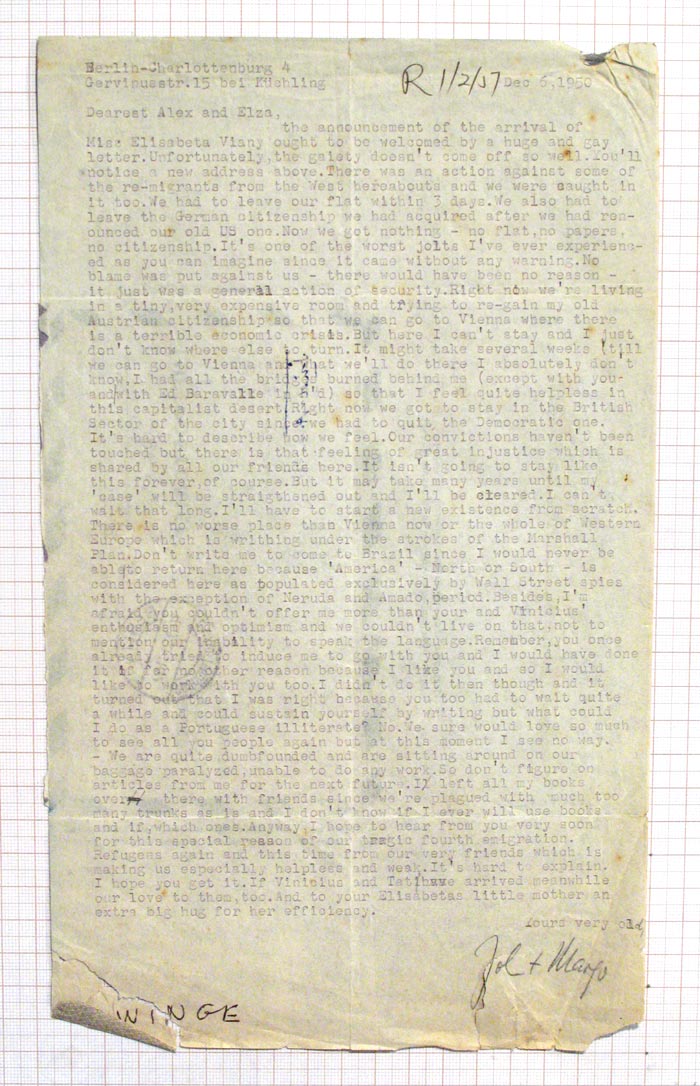 Berlin-Charlottenburg 4
Gervinusstr.15 bei Kuehling
R 1/2/57
Dec 6,1950
Dearest Alex and Elza,
the announcement of the arrival of
Miss Elisabeta Viany ought to be welcomed by a huge and gay
letter.Unfortunately,the gaiety doesn't come off so well.You'll
notice a new address above.There was an action against some of
the re-migrants from the West hereabouts and we were caught in
it too.We had to leave our flat within 3 days.We also had to
leave the German citizenship we had acquired after we had ren-
ounced our old US one.Now we got nothing - no flat,no papers,
no citizenship.It's one of the worst jolts I've ever experienc-
ed as you can imagine since it came without any warning.No
blame was put against us - there would have been no reason -
it just was a general action of security.Right now we're living
in a tiny,very expensive room and trying to re-gain my old
Austrian citizenship so that we can go to Vienna where there
is a terrible economic crisis.But here I can't stay and I just
don't know where else to turn.It might take several weeks (till
we can go to Vienna and what we'll do there I absolutely don't
know.I had all the bridges burned behind me (except with you
and with Ed Baravalle in H'd) so that I feel quite helpless in
this capitalist desert.Right now we got to stay in the British
Sector of the city since we had to quit the Democratic one.
It's hard to describe how we feel.Our convictions haven't been
touched but there is that feeling of great injustice which is
shared by all our friends here.It isn't going to stay like
this forever,of course.But it may take many years until my
'case' will be straigthened out and I'll be cleared.I can't
wait that long.I'll have to start a new existence from scratch.
There is no worse place than Vienna now or the whole of Western
Europe which is writhing under the strokes of the Marshall
Plan.Don't write me to come to Brazil since I would never be
able to return here because 'America' - North or South - is
considered here as populated exclusively by Wall Street spies
with the exception of Neruda and Amado,period.Besides,I'm
afraid you couldn't offer me more than your and Vinicius'
enthusiasm and optimism and we couldn't live on that,not to
mention our inability to speak the language.Remember,you once
already tried to induce me to go with you and I would have done
it if for no other reason because I like you and so I would
like to work with you too.I didn't do it then though and it
turned out that I was right because you too had to wait quite
a while and could sustain yourself by writing but what could
I do as a Portuguese illiterate? No.We sure would love so much
to see all you people again but at this moment I see no way.
- We are quite dumbfounded and are sitting around on our
baggage paralyzed,unable to do any work.So don't figure on
articles from me for the next future.I left all my books
over there with friends since we're plagued with much too
many trunks as is and I don't know if I ever will use books
and if,which ones.Anyway,I hope to hear from you very soon
for this special reason of our tragic fourth emigration.
Refugees again and this time from our very friends which is
making us especially helpless and weak.It's hard to explain.
I hope you get it.If Vinicius and Tati have arrived meanwhile
our love to them,too.And to your Elisabetas little mother an
extra big hug for her efficiency.
Yours very old,
+ Margo
WINGE